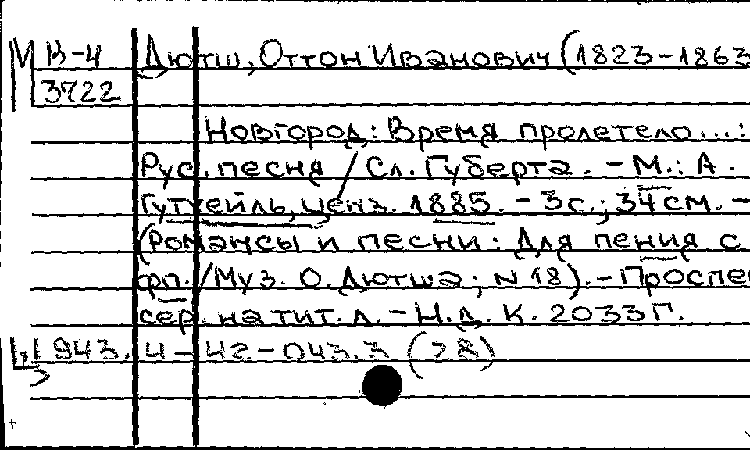 М В-4 Дютш, Оттон Иванович (1823-1863
3722
Новгород: Время пролетело...:
Рус. песня / Сл. Губерта. - М.: А.
Гутхейль, ценз. 1885. - 3с.; 34см. -
(Романсы и песни: Для пения с
фп. / Муз. О. Дютша; N 18). - Проспе
сер. на тит. л. - Н.д. К. 2033 Г.
943. 4-42-043.3 (28)